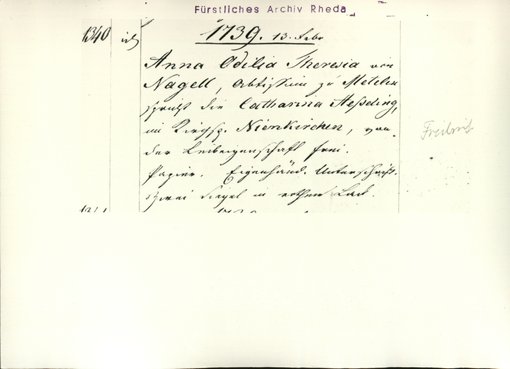 Fürstliches Archiv Rheda
1340
1739. 13. Febr
Anna Odilia Theresia von
Nagell, Äbtissin zu Metelen
spricht die Catharina Hesseding,
im Kirchsp. Nienkirchen, von
der Leibeigenschaft frei.
Papier. Eigenhänd. Unterschrift.
Zwei Siegel in rothem Lack.
Freibrief